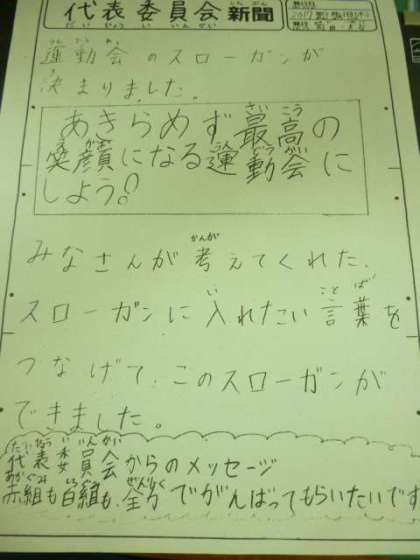 代表委員会新聞
運動会のスローガンが
決まりました。
あきらめず最高の
笑顔になる運動会に
しよう!
みなさんが考えてくれた、
スローガンに入れたい言葉を
つなげて、このスローガンが
できました。
代表委員会からのメッセージ
赤組も白組も、全力でがんばってもらいたいです